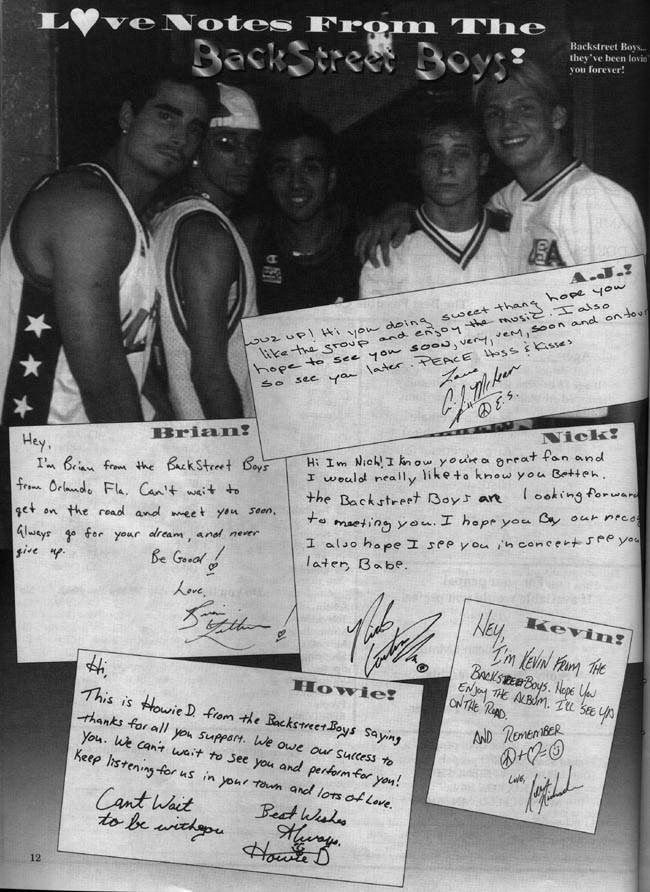 L♥ve Notes From The
BackStreet Boys!
Backstreet Boys...
they've been lovin'
you forever!
A.J.!
wuz up! Hi you doing sweet thang hope you
like the group and enjoy the music. I also
hope to see you soon, very, very, soon and on tour
so see you later. PEACE Huggs & Kisses
Love
A.J. McLean
E.S.
Brian!
Hey,
I'm Brian from the BackStreet Boys
from Orlando Fla. Can't wait to
get on the road and meet you soon.
Always go for your dream, and never
give up.
Be Good!
Love,
Brian Littrell
Nick!
Hi Im Nick! I know you're a great fan and
I would really like to know you Better.
the Backstreet Boys are looking forward
to meeting you. I hope you By our reco
I also hope I see you in concert see you
later, Babe.
Nick Carter
Kevin!
Hey,
I'm Kevin from the
Backstreet Boys. Hope you
enjoy the album. I'll see you
on the road.
And remember
☮+♡=☺
Love,
Kevin Richardson
Howie!
Hi,
This is Howie D. from the Backstreet Boys saying
thanks for all you support. We owe our success to
you. We can't wait to see you and perform for you!
Keep listening for us in your town and lots of Love.
Cant Wait
to be with you
Best Wishes
Always,
Howie D
12